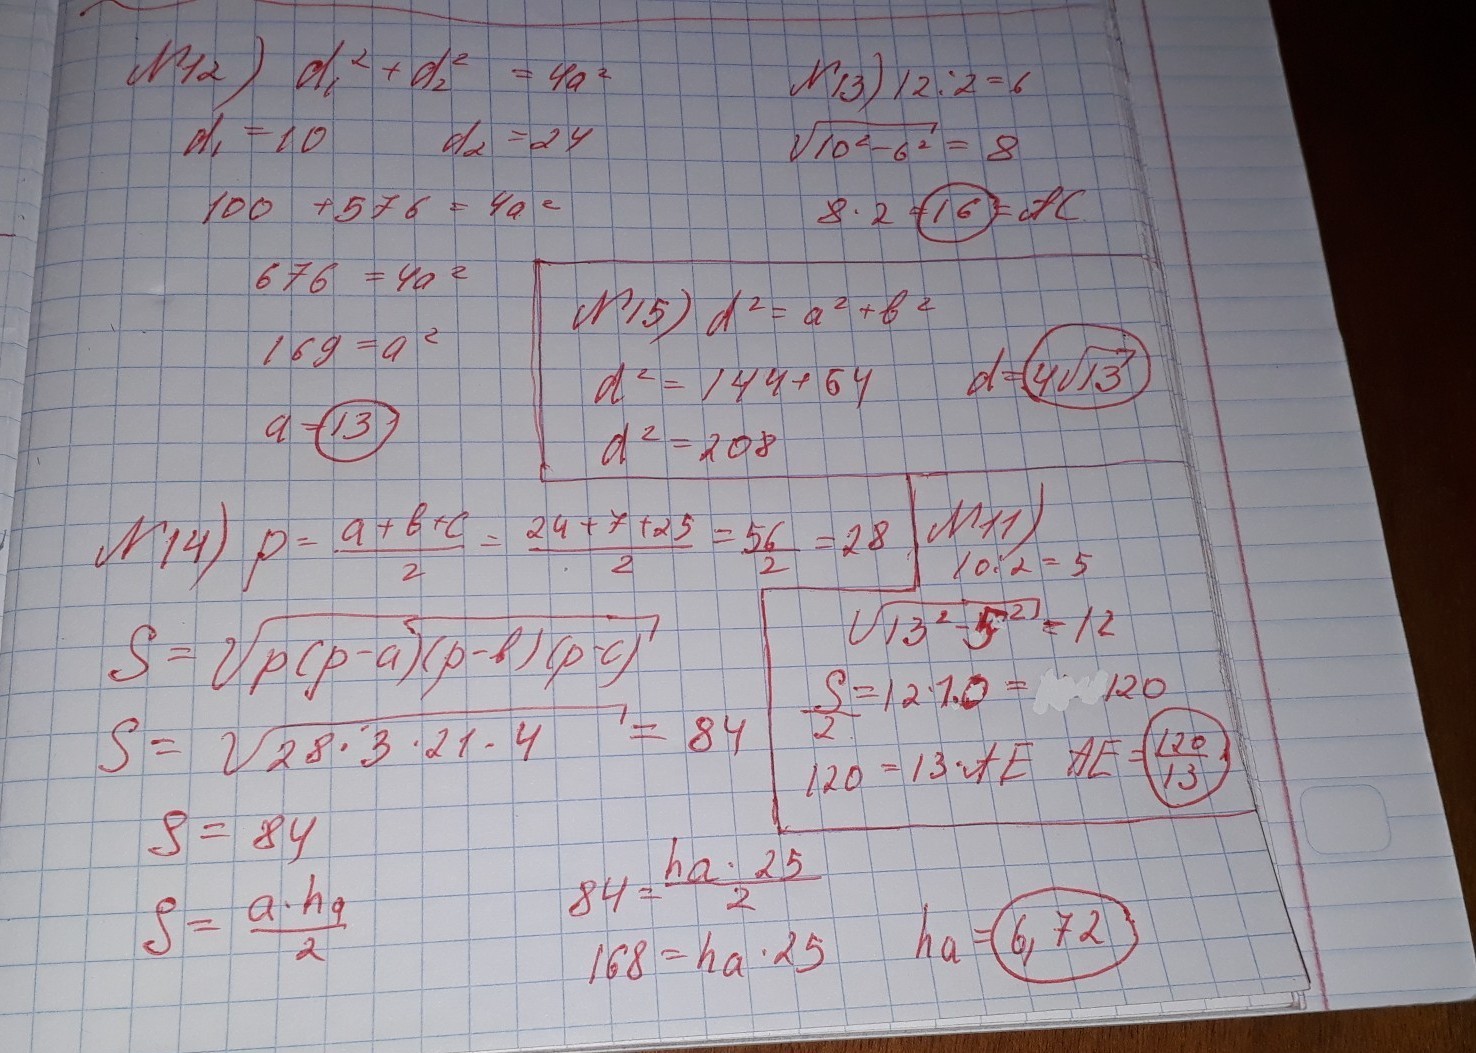 №12) d₁² + d₂² = 4a²
d₁ = 10 d₂ = 24
100 + 576 = 4a²
676 = 4a²
169 = a²
a = 13
№13) 12 : 2 = 6
√(10² - 6²) = 8
8 · 2 = 16 = AC
№15) d² = a² + b²
d² = 144 + 64
d² = 208
d = 4√13
№14) p = (a + b + c)/2 = (24 + 7 + 25)/2 = 56/2 = 28
S = √(p(p - a)(p - b)(p - c))
S = √(28 · 3 · 21 · 4) = 84
S = 84
S = (a · ha)/2
84 = (ha · 25)/2
168 = ha · 25
ha = 6,72
№11)
10 : 2 = 5
√(13² - 5²) = 12
S/2 = 12 · 10 = 120
120 = 13 · AE AE = 120/13